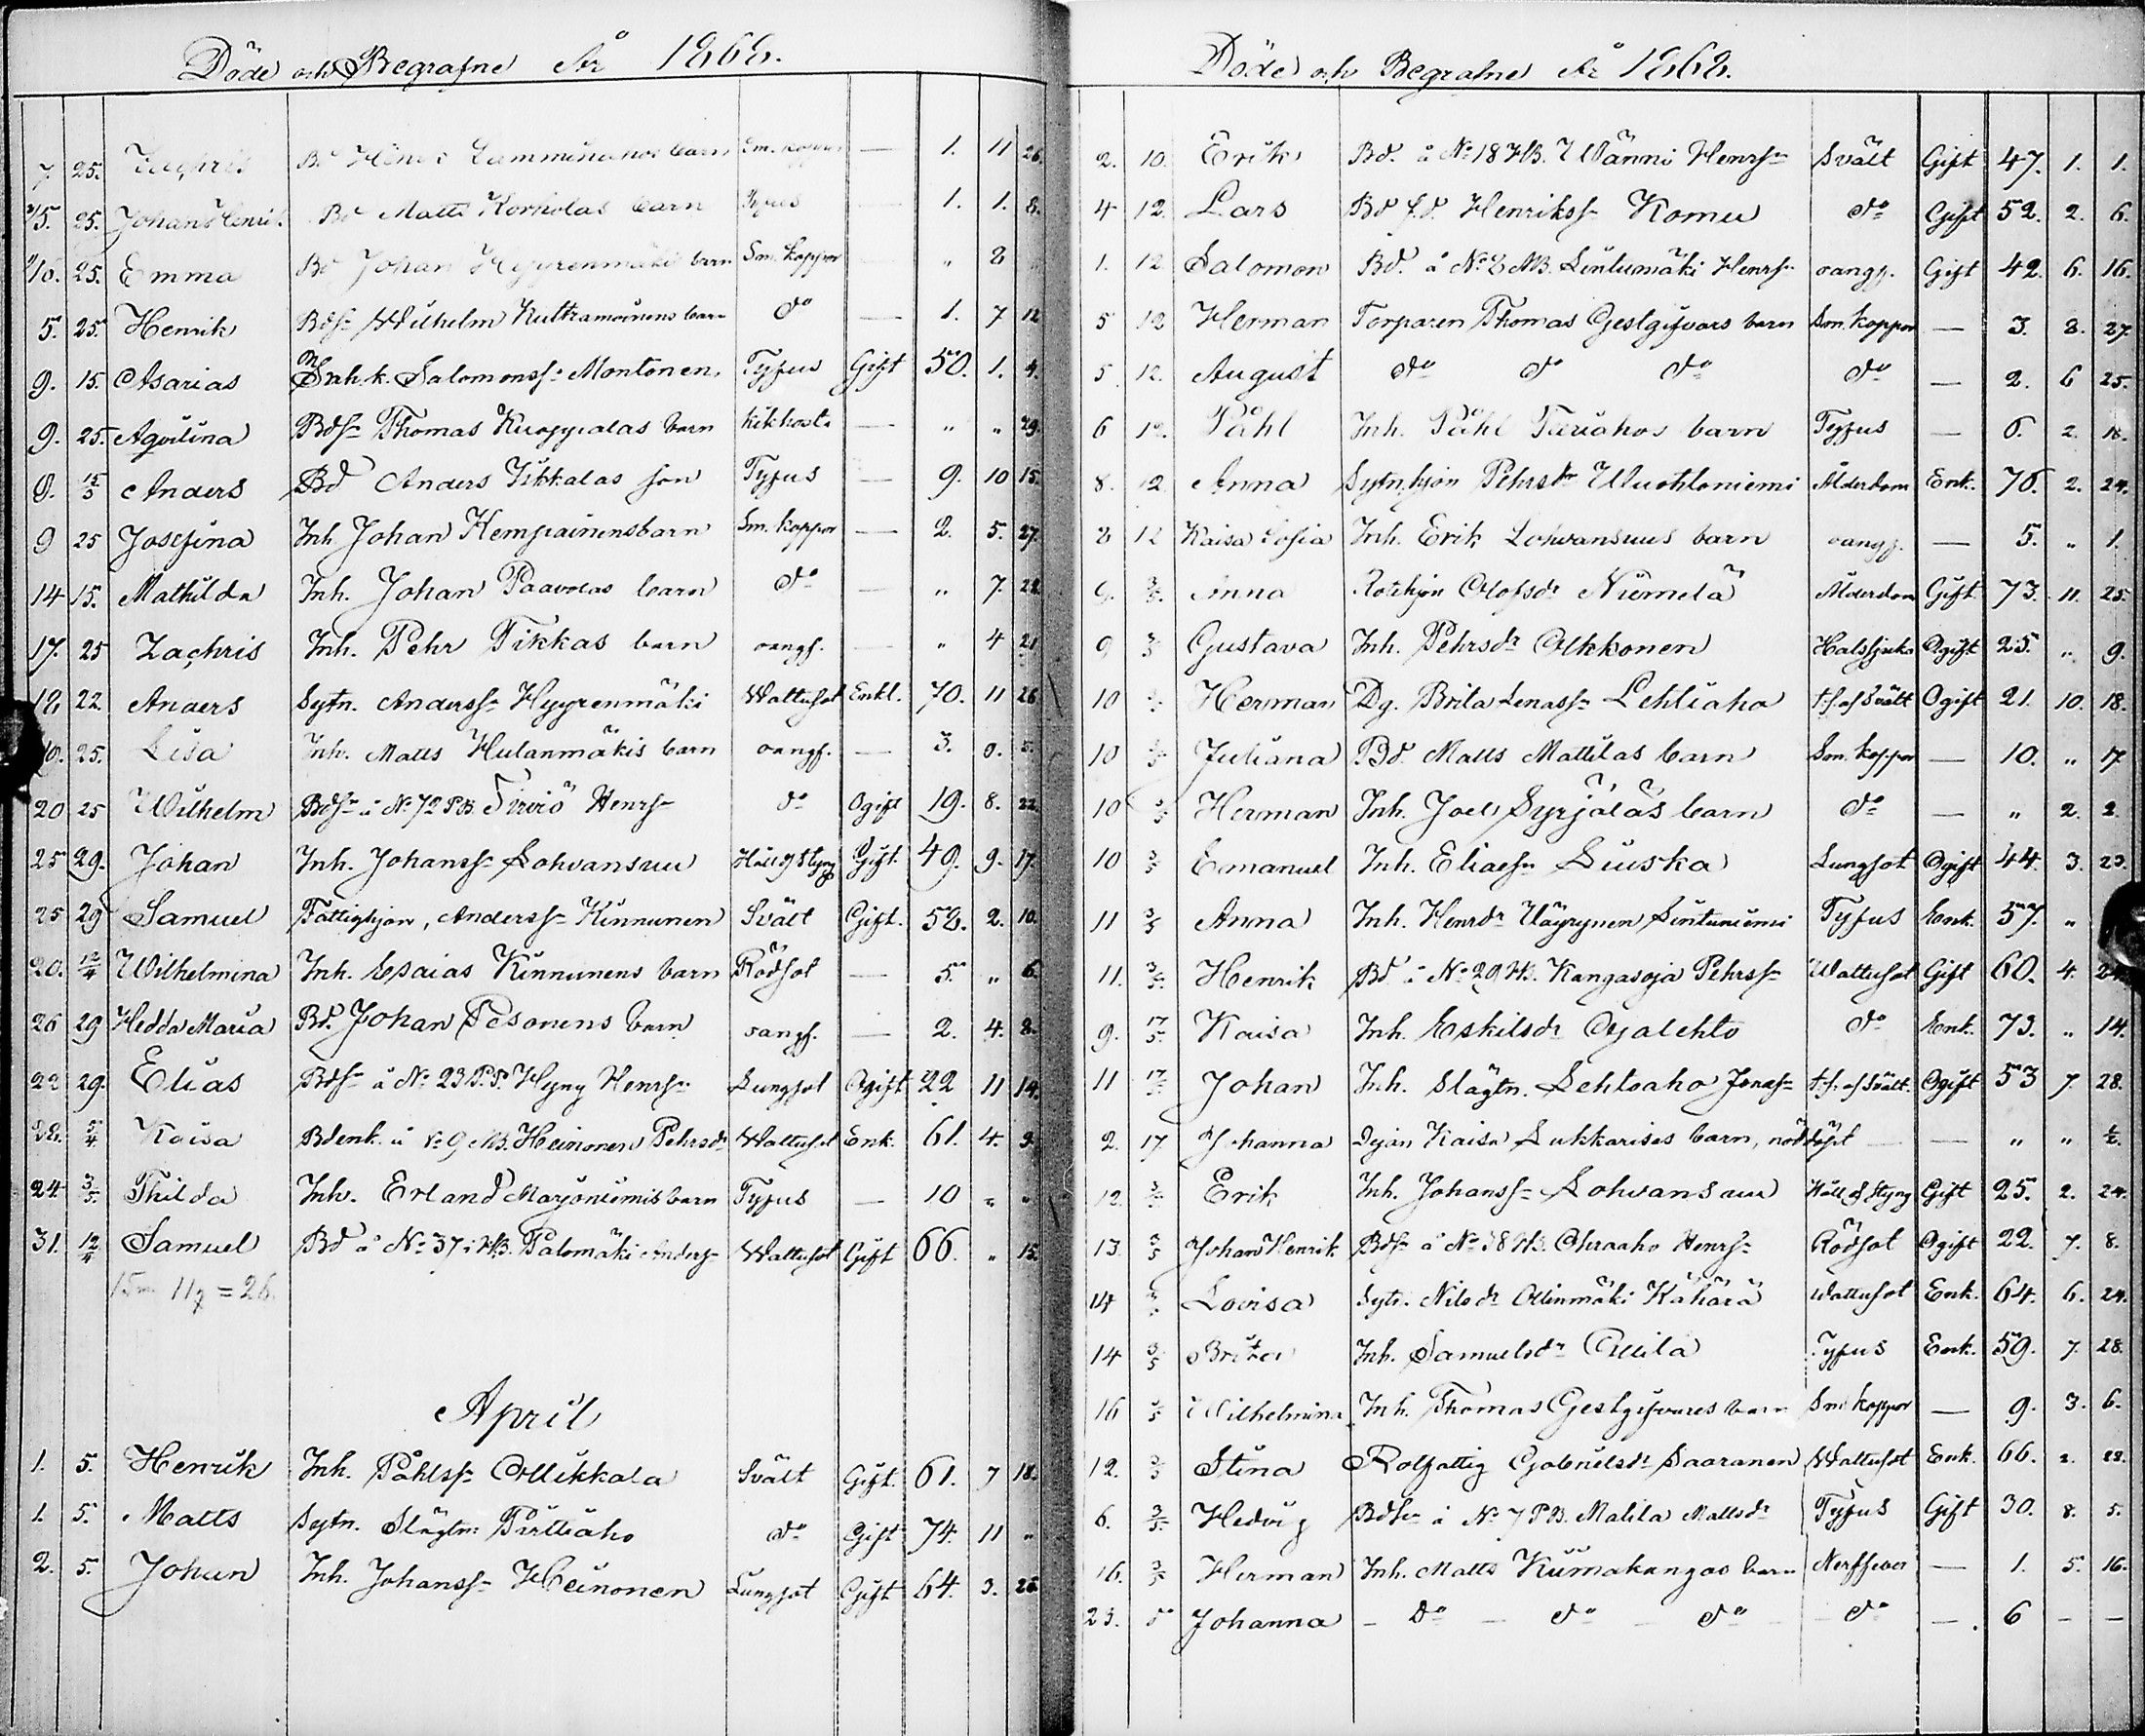 Döde och Begrafne År 1868.
7. 25. Zachris Bd Henr. barn Sm. koppor — 1. 11 26.
15. 25. Johan Henri. Bd Matts Korholas barn Tyfus — 1. 1. 8.
10. 25. Emma Bd Johan Hyyrenmäkis barn Sm. koppor — " 8
5. 25. Henrik Bdsn Wilhelm Kultramoinens barn do — 1. 7 12
9. 15. Asarias Enh.k. Salomonss. Montonen. Tyfus Gift 50. 1. 4.
9. 25. Aqvilina Bdsn Thomas Kuoppalas barn kikhosta — " " 29.
9. 15/3 Anders Bd Anders Yikkalas son Tyfus — 9. 10 15.
9 25 Josefina Inh Johan Hempainens barn Sm. koppor — 2. 5. 27.
14 15. Mathilda Inh. Johan Paavolas barn do — " 7. 22.
17. 25 Zachris Inh. Pehr Tikkas barn oangf. — " 4 21
18 22 Anders Sytn. Anderss. Hyyrenmäki Wattusot Enkl. 70. 11 26
19. 25. Lisa Inh. Matts Hulanmäkis barn oangf. — 3. 0. 5.
20 25 Wilhelm Bdsn å No 72 PB. Tirviö Henrs. do Ogift 19. 8. 22.
25 29. Johan Inh. Johanss. Lohvansuu Håll o Styng Gift. 49. 9. 17.
25 29 Samuel Fattighjon, Anderss. Kinnunen Svält Gift. 58. 2. 10.
20. 12/4 Wilhelmina Inh. Esaias Kinnunens barn Rödsot — 5. " 6.
26 29 Hedda Maria Bd. Johan Pesonens barn oangf. — 2. 4. 8.
22 29. Elias Bdsn å No 23 P.S. Hyny Henrs. Lungsot Ogift 22 11 14.
28. 5/4 Kaisa Bdenk. å No 9 MB. Heinonen Pehrsdr Wattusot Enk. 61. 4. 9.
24. 3/5. Thilda Inh. Erland Marjoniemis barn Tyfus — 10 " "
31. 12/4 Samuel Bd å No 37 i HB. Palomäki Anders. Wattusot Gift 66. " 15.
15m 11q = 26.
April
1. 5. Henrik Inh. Påhlss. Ollikkala Svält Gift. 61. 7 18.
1. 5. Matts Sytn. Slägtn: Pirttiaho do Gift 74. 11 "
2. 5. Johan Inh. Johanss. Heinonen Lungsot Gift 64. 3. 25
Döde och Begrafne År 1868.
2. 10. Erik Bd. å No 18 HB. Wänni Henrsn Svält Gift 47. 1. 1.
4 12. Lars Bd f.d. Henrikss. Komu do Gift 52. 2. 6.
1. 12 Salomon Bd. å No 8 MB. Lintumäki Henrs. oangf. Gift 42. 6. 16.
5 12 Herman Torparen Thomas Gestgifvars barn Sm. koppor — 3. 8. 27.
5 12. August do do do do — 2. 6 25.
6 12. Påhl Inh. Påhl Turiahos barn Tyfus — 6. 2. 18.
8. 12 Anna Sytn.hjon Pehrsdr Wuohloniemi Ålderdom Enk. 76. 2. 24.
8 12 Kaisa Sofia Inh. Erik Lohvansuus barn oangf. — 5. " 1.
9. 3/5. Anna Rotehjon Olofsdr Niemelä Ålderdom Gift. 73. 11. 25.
9 3/5 Gustava Inh. Pehrsdr Olkkonen Halssjuka Ogift 25. " 9.
10 Herman Dg. Brita Lenass. Lehtiaho t.f. af Svält Ogift 21. 10. 18.
10 3/5 Juliana Bd. Matts Mattilas barn Sm. koppor — 10. " 17
10 3/5 Herman Inh. Joel Syrjäläs barn do — " 2. 2.
10 3/5 Emanuel Inh. Eliaesn Liuska Lungsot Ogift 44. 3. 23.
11 3/5 Anna Inh. Henrdr Wäyrynen Lintuniemi Tyfus Enk. 57. "
11. 3/5. Henrik Bd å No 29 HB. Kangasoja Pehrss. Wattusot Gift 60. 4. 24.
9. 17/5. Kaisa Inh. Eskilsdr Ojalehto do Enk. 73. " 14.
11 17/5 Johan Inh. Slägtn. Lehtoaho Jonass. t.f. af Svält. Ogift 53 7. 28.
2. 17 Johanna Pijan Kaisa Lukkarises barn, nöddöpt — — " " ½.
12. 3/5 Erik Inh. Johanss. Lohvansuu Håll o Styng Gift 25. 2. 24.
13. 3/5 Johan Henrik Bdsn å No 38 HB. Ohraaho Henrs. Rödsot Ogift 22. 7. 8.
14 Lovisa Sytn. Nilsdr Ollinmäki Kähärä Wattusot Enk. 64. 6. 24.
14 3/5 Brita Inh. Samuelsdr Ollila Tyfus Enk. 59. 7. 28.
16 3/5 Wilhelmina Inh. Thomas Gestgifvares barn Sm. koppor — 9. 3. 6.
12. 3/5 Stina Rotfattig Gabrielsdr Saaranen Wattusot Enk. 66. 2. 22.
6. 3/5. Hedvig Bdhu å No 7 PB. Malila Mattsdr Tyfus Gift 30. 8. 5.
16. 3/5 Herman Inh. Matts Kiimakangas barn Nerffeber — 1. 5. 16.
23. 5 Johanna – Do – do – do do — 6 – –